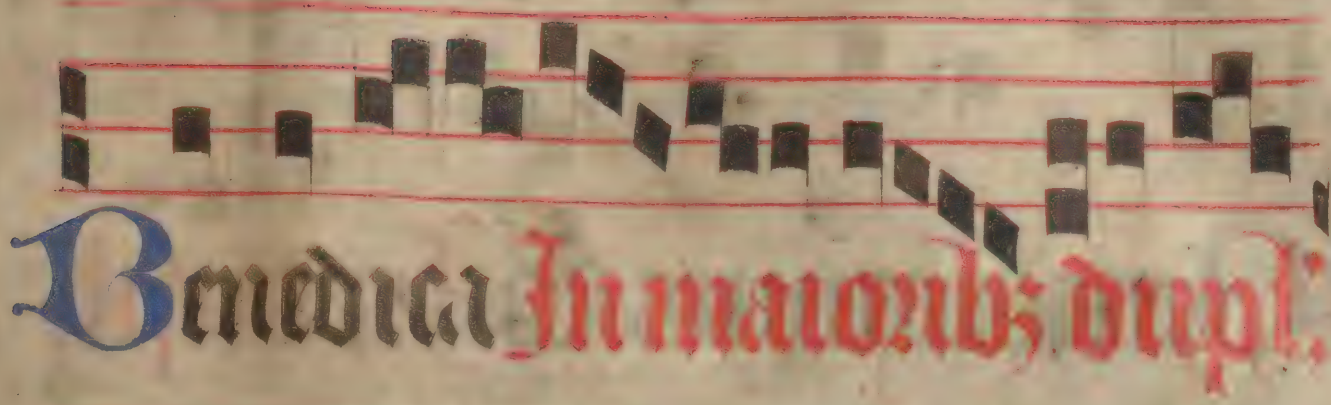 Benedica In maioribꝫ dupl'.